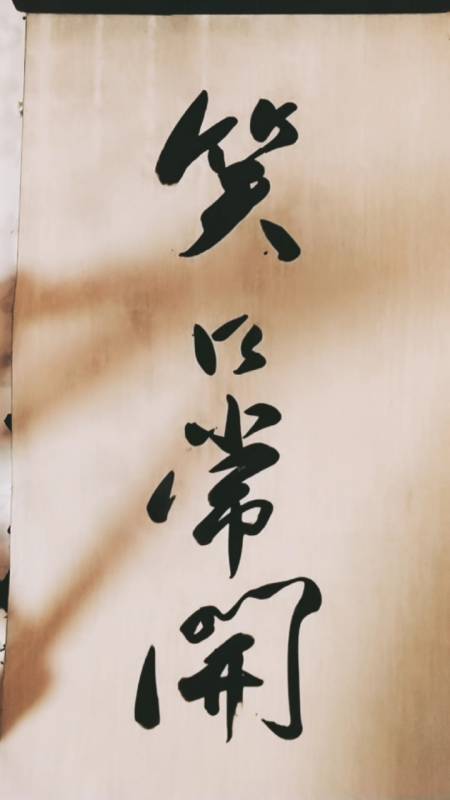 笑口常開